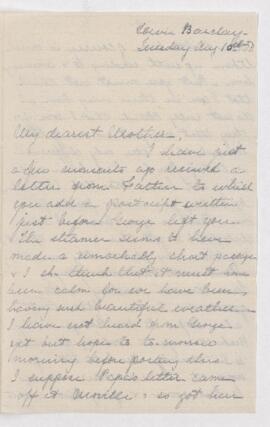 Barclay
Tuesday Aug 10th
My dearest Mother,
I have just
a few minutes ago received a
letter from Father to which
you add a postscript written
just before George left you
The steamer seems to have
made a remarkably short passage
& I sh think that it must have
been calm for we have been
having such beautiful weather.
I have not heard from George
yet but hope to to-morrow
morning before posting this
I suppose Papa's letter came
off at Moville & so got here